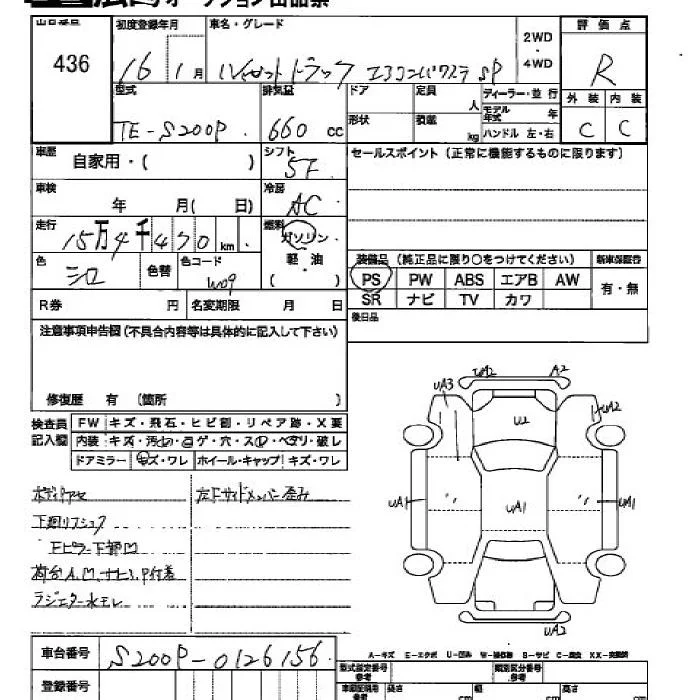 広島オークション出品票
出品番号 初度登録年月 車名・グレード 評価点
436 16 1月 ハイゼットトラック エアコンパワステ SP 2WD・4WD R
型式 排気量 ドア 定員 人 ディーラー・並行 外装 内装
TE-S200P 660cc 形状 積載 kg モデル年式 年 ハンドル 左・右 C C
車歴 自家用・( ) シフト 5F セールスポイント (正常に機能するものに限ります)
車検 年 月( 日) 冷房 AC
走行 15万4千470km 燃料 ガソリン・軽油 ( )
色 シロ 色替 色コード W09 装備品 (純正品に限り○をつけてください) 新車保証書
PS PW ABS エアB AW 有・無
SR ナビ TV カワ
R券 円 名変期限 月 日 後日品
注意事項申告欄 (不具合内容等は具体的に記入して下さい)
修復歴 有 (箇所 )
検査員記入欄 FW キズ・飛石・ヒビ割・リペア跡・X要
内装 キズ・汚れ・コゲ・穴・スレ・ベタリ・破レ
ドアミラー キズ・ワレ ホイール・キャップ キズ・ワレ
ボディアセ 左Fサイドメンバー歪み
下廻りフショク
Fピラー下部凹
荷台A、凹、サビ、P付着
ラジエター水モレ
UA2 A2
UA3 UA2
U2
UA1 〃 UA1 〃 UA1
UA2
A-キズ E-エクボ U-凹み W-補修跡 S-サビ C-腐食 XX-交換済
車台番号 S200P-0126156 型式指定番号 参考 類別区分番号 参考
登録番号 車庫証明用 参考 長さ cm 幅 cm 高さ cm